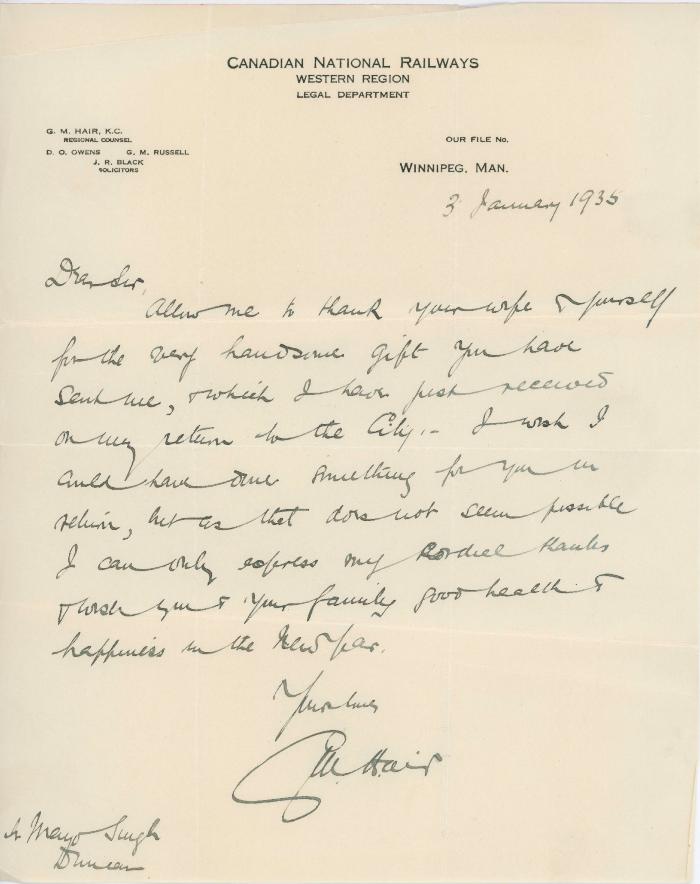 CANADIAN NATIONAL RAILWAYS
WESTERN REGION
LEGAL DEPARTMENT
G. M. HAIR, K.C.
REGIONAL COUNSEL
D. O. OWENS G. M. RUSSELL
J. R. BLACK
SOLICITORS
OUR FILE No.
WINNIPEG, MAN.
3 January 1935
Dear Sir,
Allow me to thank your wife & yourself
for the very handsome gift you have
sent me, & which I have just received
on my return to the City. - I wish I
could have done something for you in
return, but as that does not seem possible
I can only express my cordial thanks
& wish you & your family good health &
happiness in the New Year.
Yours truly
GM Hair
Mayo Singh
Duncan